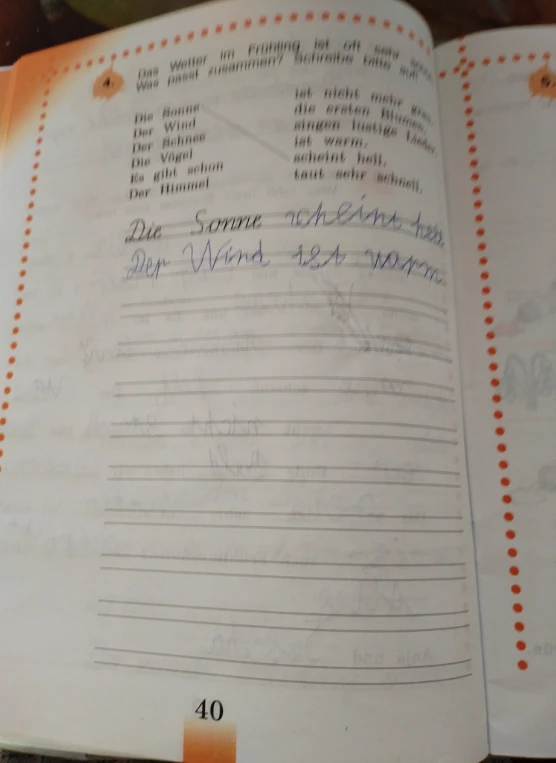 4. Das Wetter im Frühling ist oft sehr
Was passt zusammen? Schreibe bitte auf.
Die Sonne
Der Wind
Der Schnee
Die Vögel
Es gibt schon
Der Himmel
ist nicht mehr grau.
die ersten Blumen.
singen lustige Lieder.
ist warm.
scheint hell.
taut sehr schnell.
Die Sonne scheint hell.
Der Wind ist warm.
40